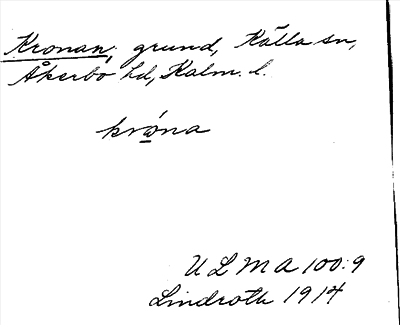 Kronan, grund, Källa sn,
Åkerbo hd, Kalm. l.
kró̲na
U L M A 100:9
Lindroth 1914